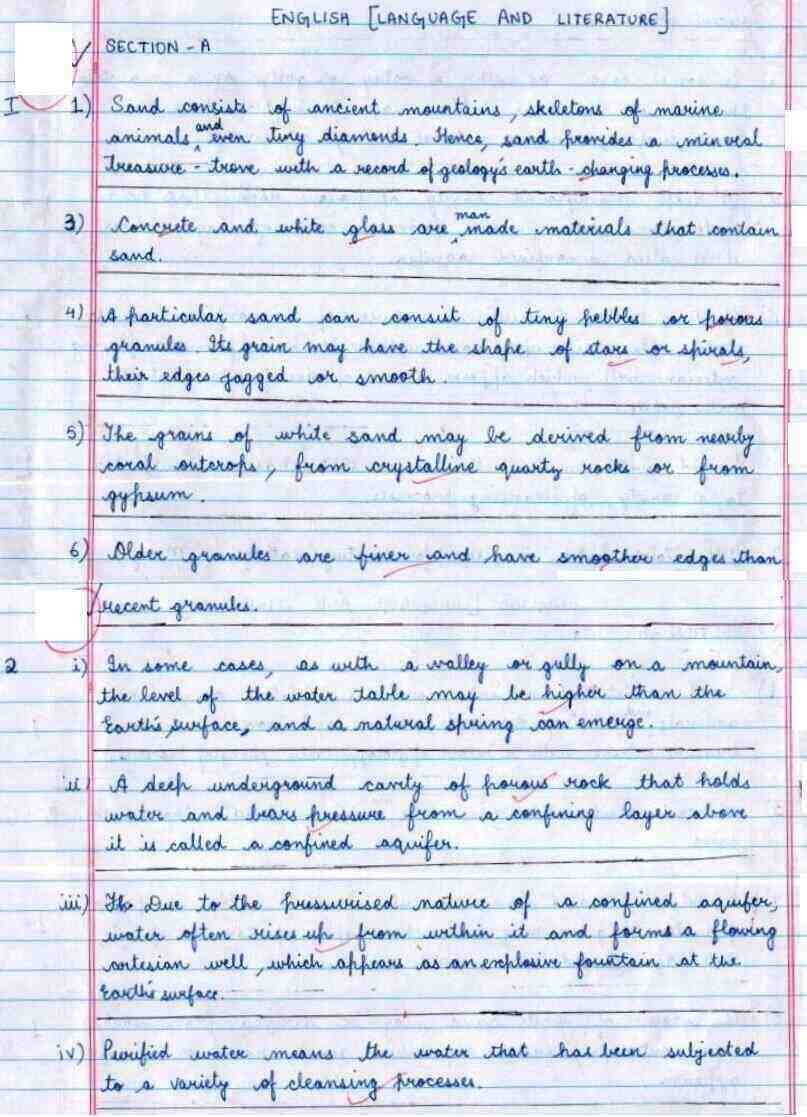 ENGLISH [LANGUAGE AND LITERATURE]
SECTION - A
I 1) Sand consists of ancient mountains, skeletons of marine
animals and even tiny diamonds. Hence, sand provides a mineral
treasure - trove with a record of geology's earth - changing processes.
3) Concrete and white glass are man made materials that contain
sand.
4) A particular sand can consist of tiny pebbles or porous
granules. Its grain may have the shape of stars or spirals,
their edges jagged or smooth.
5) The grains of white sand may be derived from nearby
coral outcrops, from crystalline quartz rocks or from
gypsum.
6) Older granules are finer and have smoother edges than
recent granules.
2 i) In some cases, as with a valley or gully on a mountain,
the level of the water table may be higher than the
Earth's surface, and a natural spring can emerge.
ii) A deep underground cavity of porous rock that holds
water and bears pressure from a confining layer above
it is called a confined aquifer.
iii) Due to the pressurised nature of a confined aquifer,
water often rises up from within it and forms a flowing
artesian well, which appears as an explosive fountain at the
Earth's surface.
iv) Purified water means the water that has been subjected
to a variety of cleansing processes.